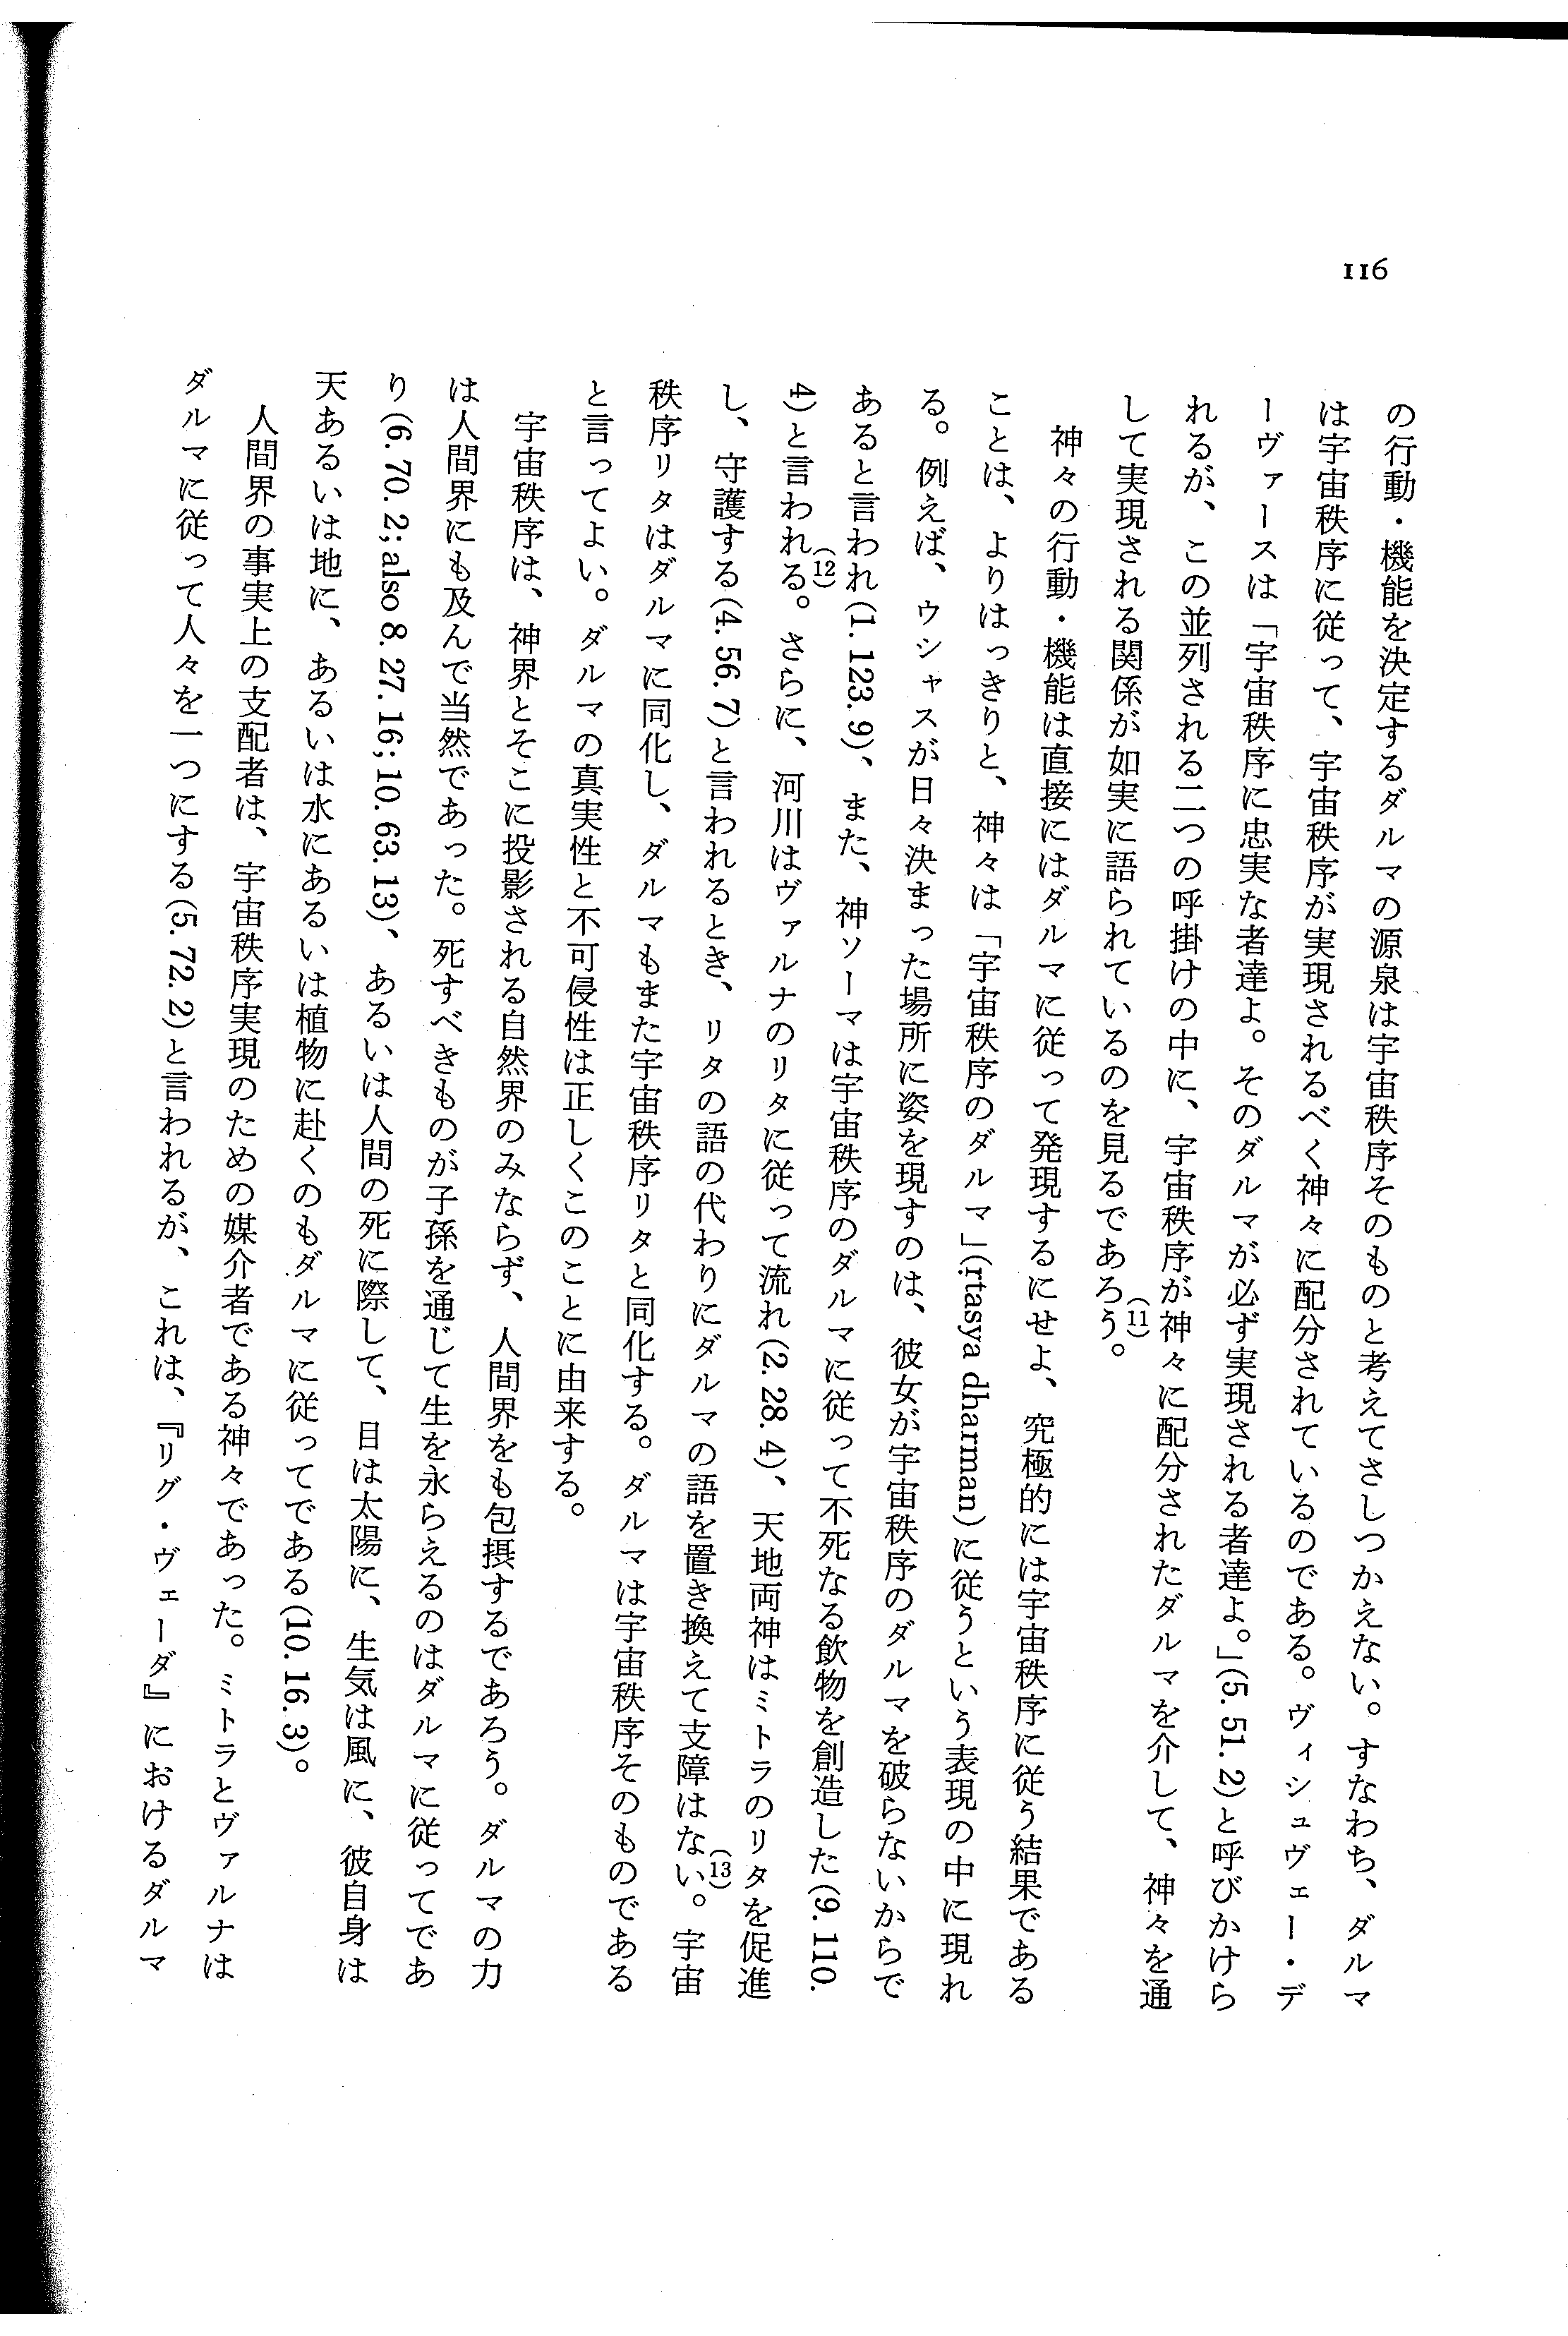 116
の行動・機能を決定するダルマの源泉は宇宙秩序そのものと考えてさしつかえない。すなわち、ダルマ
は宇宙秩序に従って、宇宙秩序が実現されるべく神々に配分されているのである。ヴィシュヴェー・デ
ーヴァースは「宇宙秩序に忠実な者達よ。そのダルマが必ず実現される者達よ。」(5. 51. 2)と呼びかけら
れるが、この並列される二つの呼掛けの中に、宇宙秩序が神々に配分されたダルマを介して、神々を通
して実現される関係が如実に語られているのを見るであろう。(11)
神々の行動・機能は直接にはダルマに従って発現するにせよ、究極的には宇宙秩序に従う結果である
ことは、よりはっきりと、神々は「宇宙秩序のダルマ」(ṛtasya dharman)に従うという表現の中に現れ
る。例えば、ウシャスが日々決まった場所に姿を現すのは、彼女が宇宙秩序のダルマを破らないからで
あると言われ(1. 123. 9)、また、神ソーマは宇宙秩序のダルマに従って不死なる飲物を創造した(9. 110.
4)と言われる。(12)さらに、河川はヴァルナのリタに従って流れ(2. 28. 4)、天地両神はミトラのリタを促進
し、守護する(4. 56. 7)と言われるとき、リタの語の代わりにダルマの語を置き換えて支障はない。(13)宇宙
秩序リタはダルマに同化し、ダルマもまた宇宙秩序リタと同化する。ダルマは宇宙秩序そのものである
と言ってよい。ダルマの真実性と不可侵性は正しくこのことに由来する。
宇宙秩序は、神界とそこに投影される自然界のみならず、人間界をも包摂するであろう。ダルマの力
は人間界にも及んで当然であった。死すべきものが子孫を通じて生を永らえるのはダルマに従ってであ
り(6. 70. 2; also 8. 27. 16; 10. 63. 13)、あるいは人間の死に際して、目は太陽に、生気は風に、彼自身は
天あるいは地に、あるいは水にあるいは植物に赴くのもダルマに従ってである(10. 16. 3)。
人間界の事実上の支配者は、宇宙秩序実現のための媒介者である神々であった。ミトラとヴァルナは
ダルマに従って人々を一つにする(5. 72. 2)と言われるが、これは、『リグ・ヴェーダ』におけるダルマ